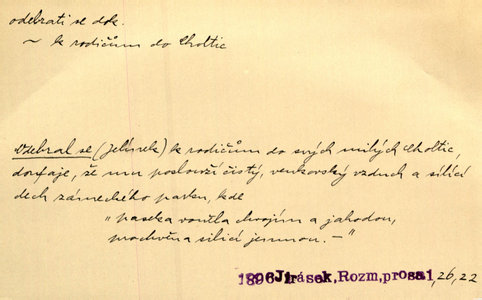 odebrati se dok.
~ k rodičům do Choltic
Odebral se (Jelínek) k rodičům do svých milých Choltic,
doufaje, že mu poslouží čistý, venkovský vzduch a sílící
dech zámeckého parku, kde
"paseka voněla chvojím a jahodou,
prochvěna silicí jemnou. –"
1896 Jirásek, Rozm, prosa 1, 26, 22